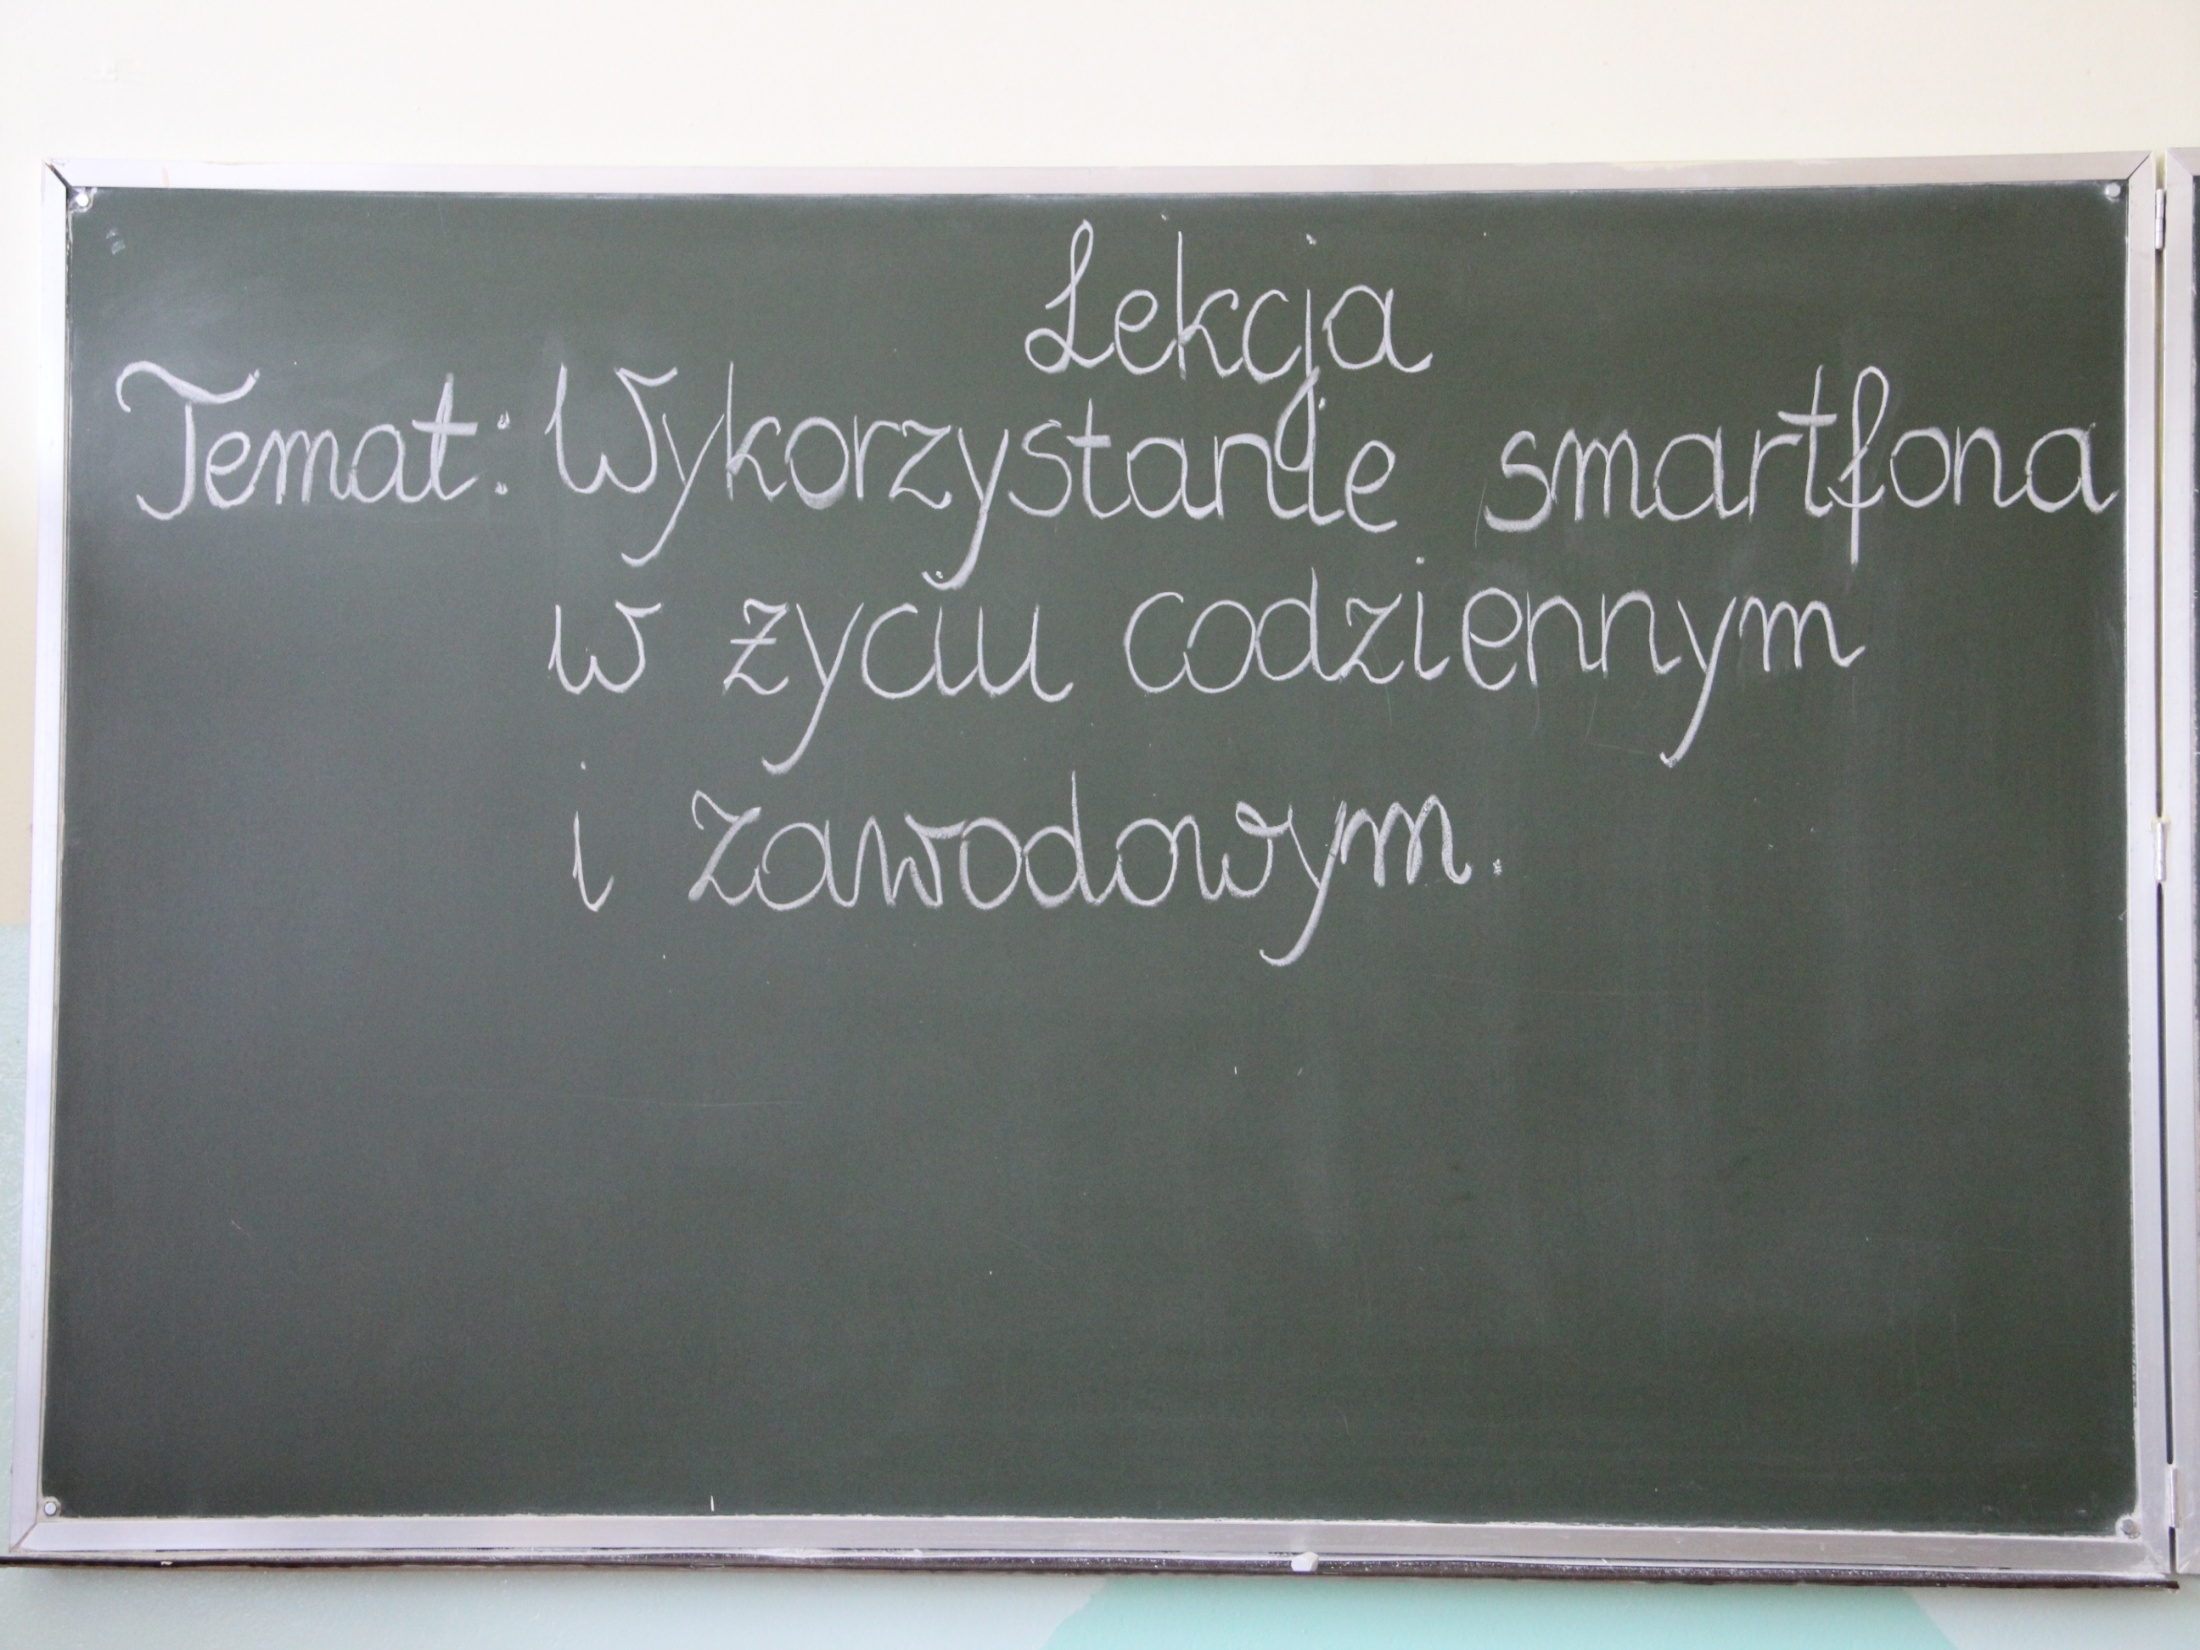 Lekcja
Temat: Wykorzystanie smartfona
w życiu codziennym
i zawodowym.